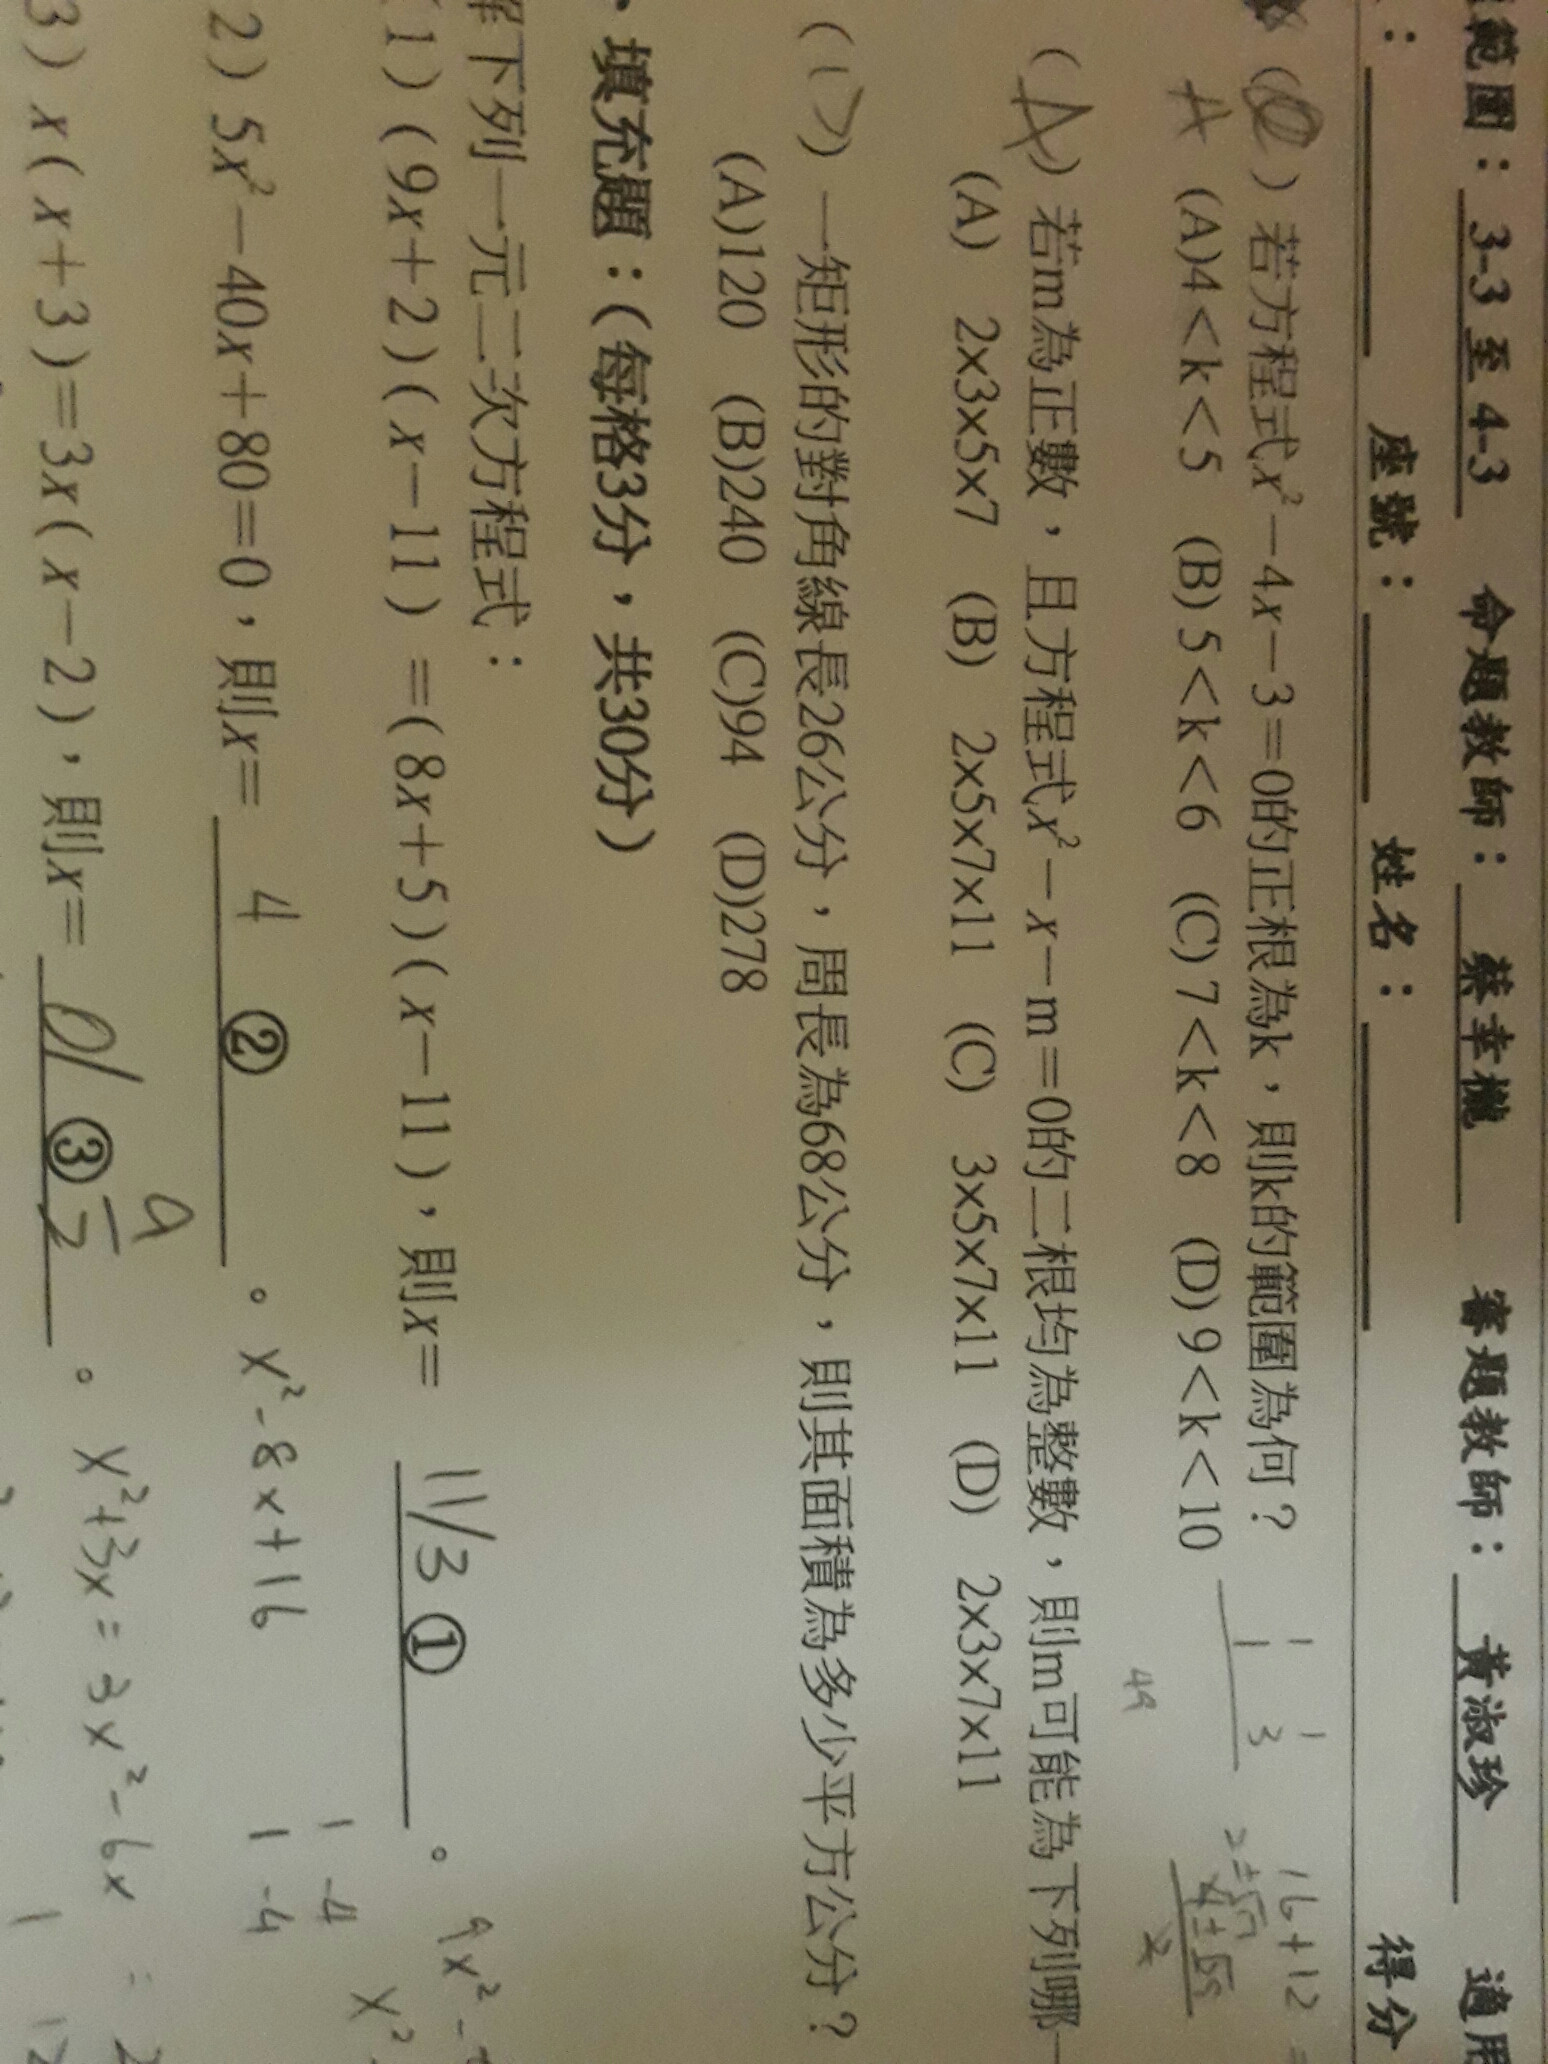 範圍：3-3至4-3 命題教師：蔡幸櫳 審題教師：黃淑珍 適用
： 座號： 姓名： 得分
( ) 若方程式x²－4x－3＝0的正根為k，則k的範圍為何？
A (A)4＜k＜5 (B)5＜k＜6 (C)7＜k＜8 (D)9＜k＜10
1 1
1 3
16+12
49
(A) 若m為正數，且方程式x²－x－m＝0的二根均為整數，則m可能為下列哪一
(A) 2×3×5×7 (B) 2×5×7×11 (C) 3×5×7×11 (D) 2×3×7×11
( ) 一矩形的對角線長26公分，周長為68公分，則其面積為多少平方公分？
(A)120 (B)240 (C)94 (D)278
、填充題：(每格3分，共30分)
解下列一元二次方程式：
(1) (9x＋2)(x－11)＝(8x＋5)(x－11)，則x＝ 11/3 ① 。
2) 5x²－40x＋80＝0，則x＝ 4 ② 。 x²-8x+16
1 -4
1 -4
3) x(x＋3)＝3x(x－2)，則x＝ 0/ ③ 9/2 。 x²+3x=3x²-6x